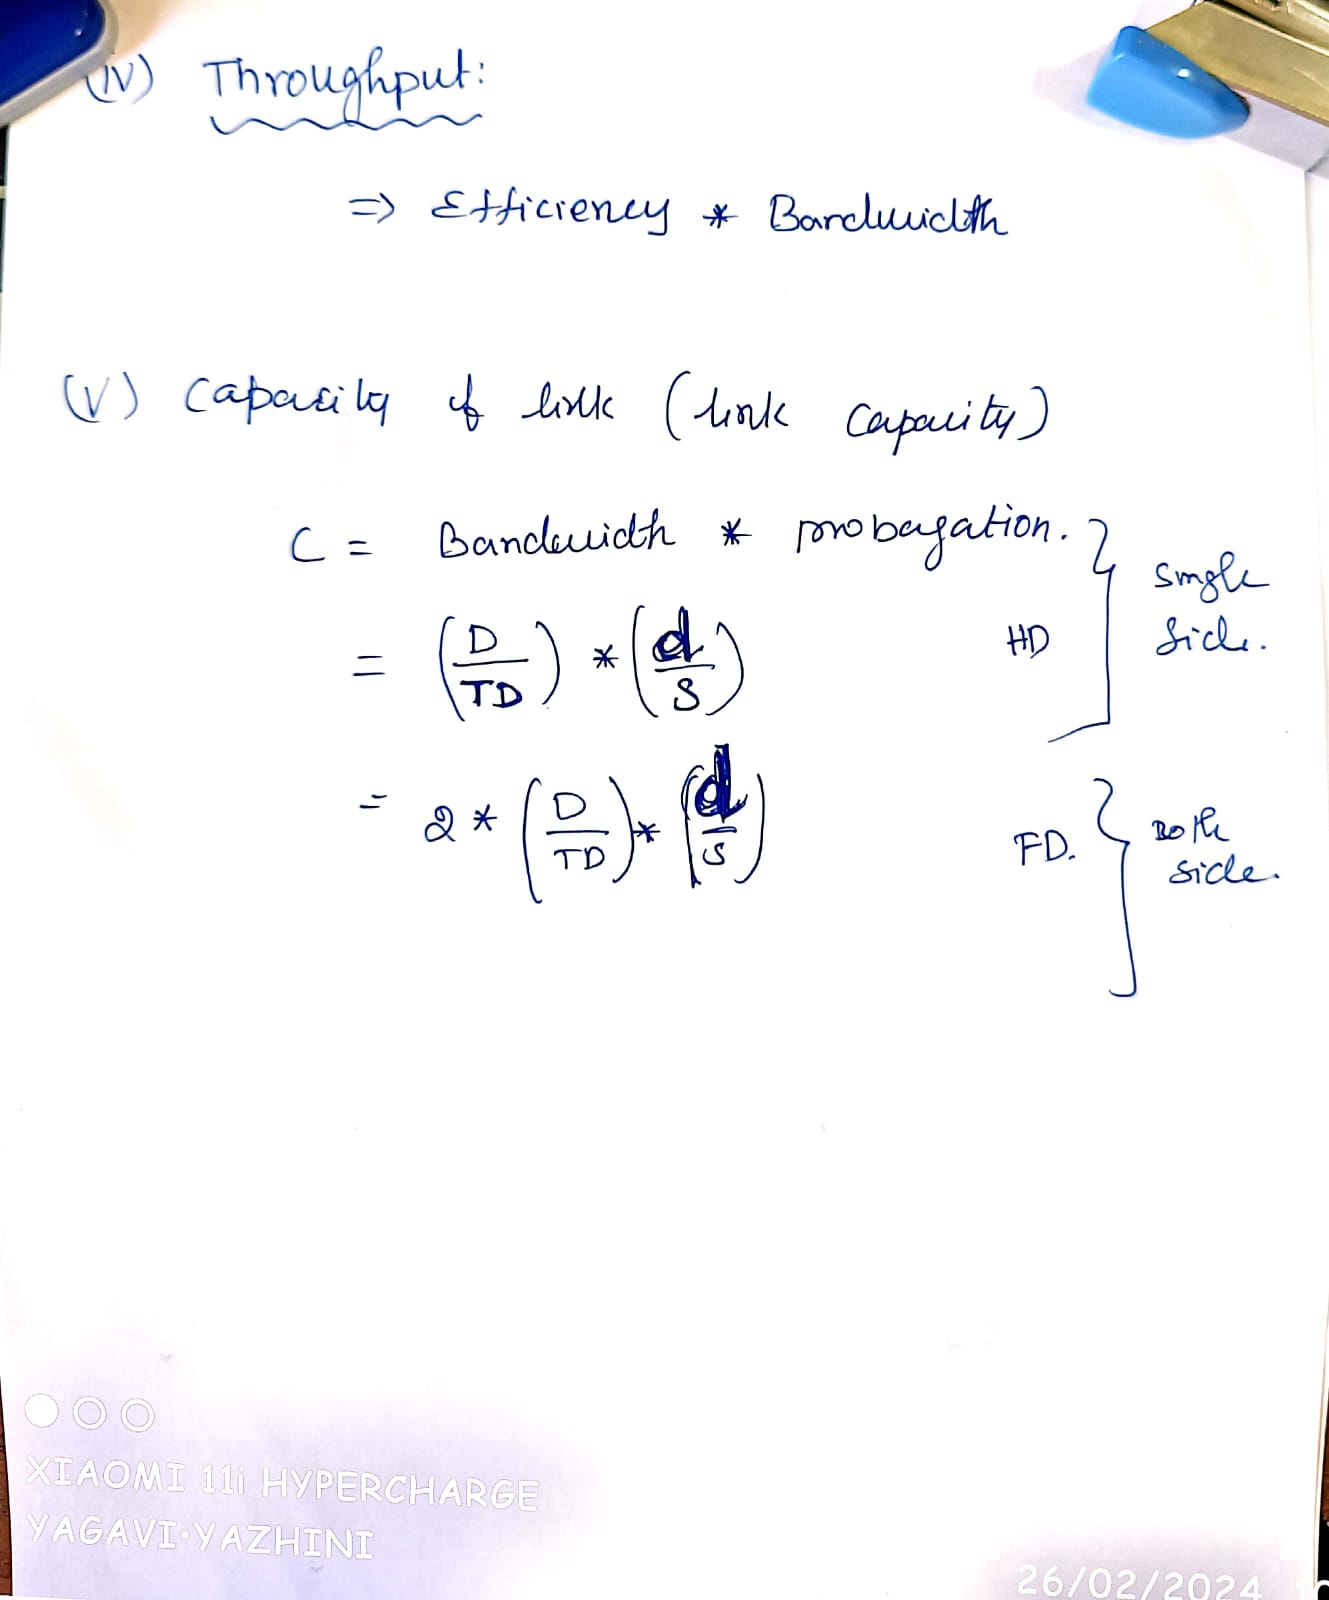 (IV) Throughput:
=> Efficiency * Bandwidth
(V) Capacity of link (link capacity)
C = Bandwidth * probagation.
Single
side.
= (D/TD) * (d/S) HD
= 2 * (D/TD) * (d/S) FD.
Both
side.
XIAOMI 11i HYPERCHARGE
YAGAVI·YAZHINI
26/02/2024